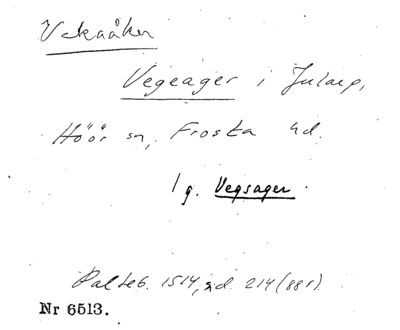 Vekaåker
Vegeager i Jularp,
Höör sn, Frosta hd.
1 g. Vegsager.
Palteb. 1514, sid. 214 (881)
Nr 6513.